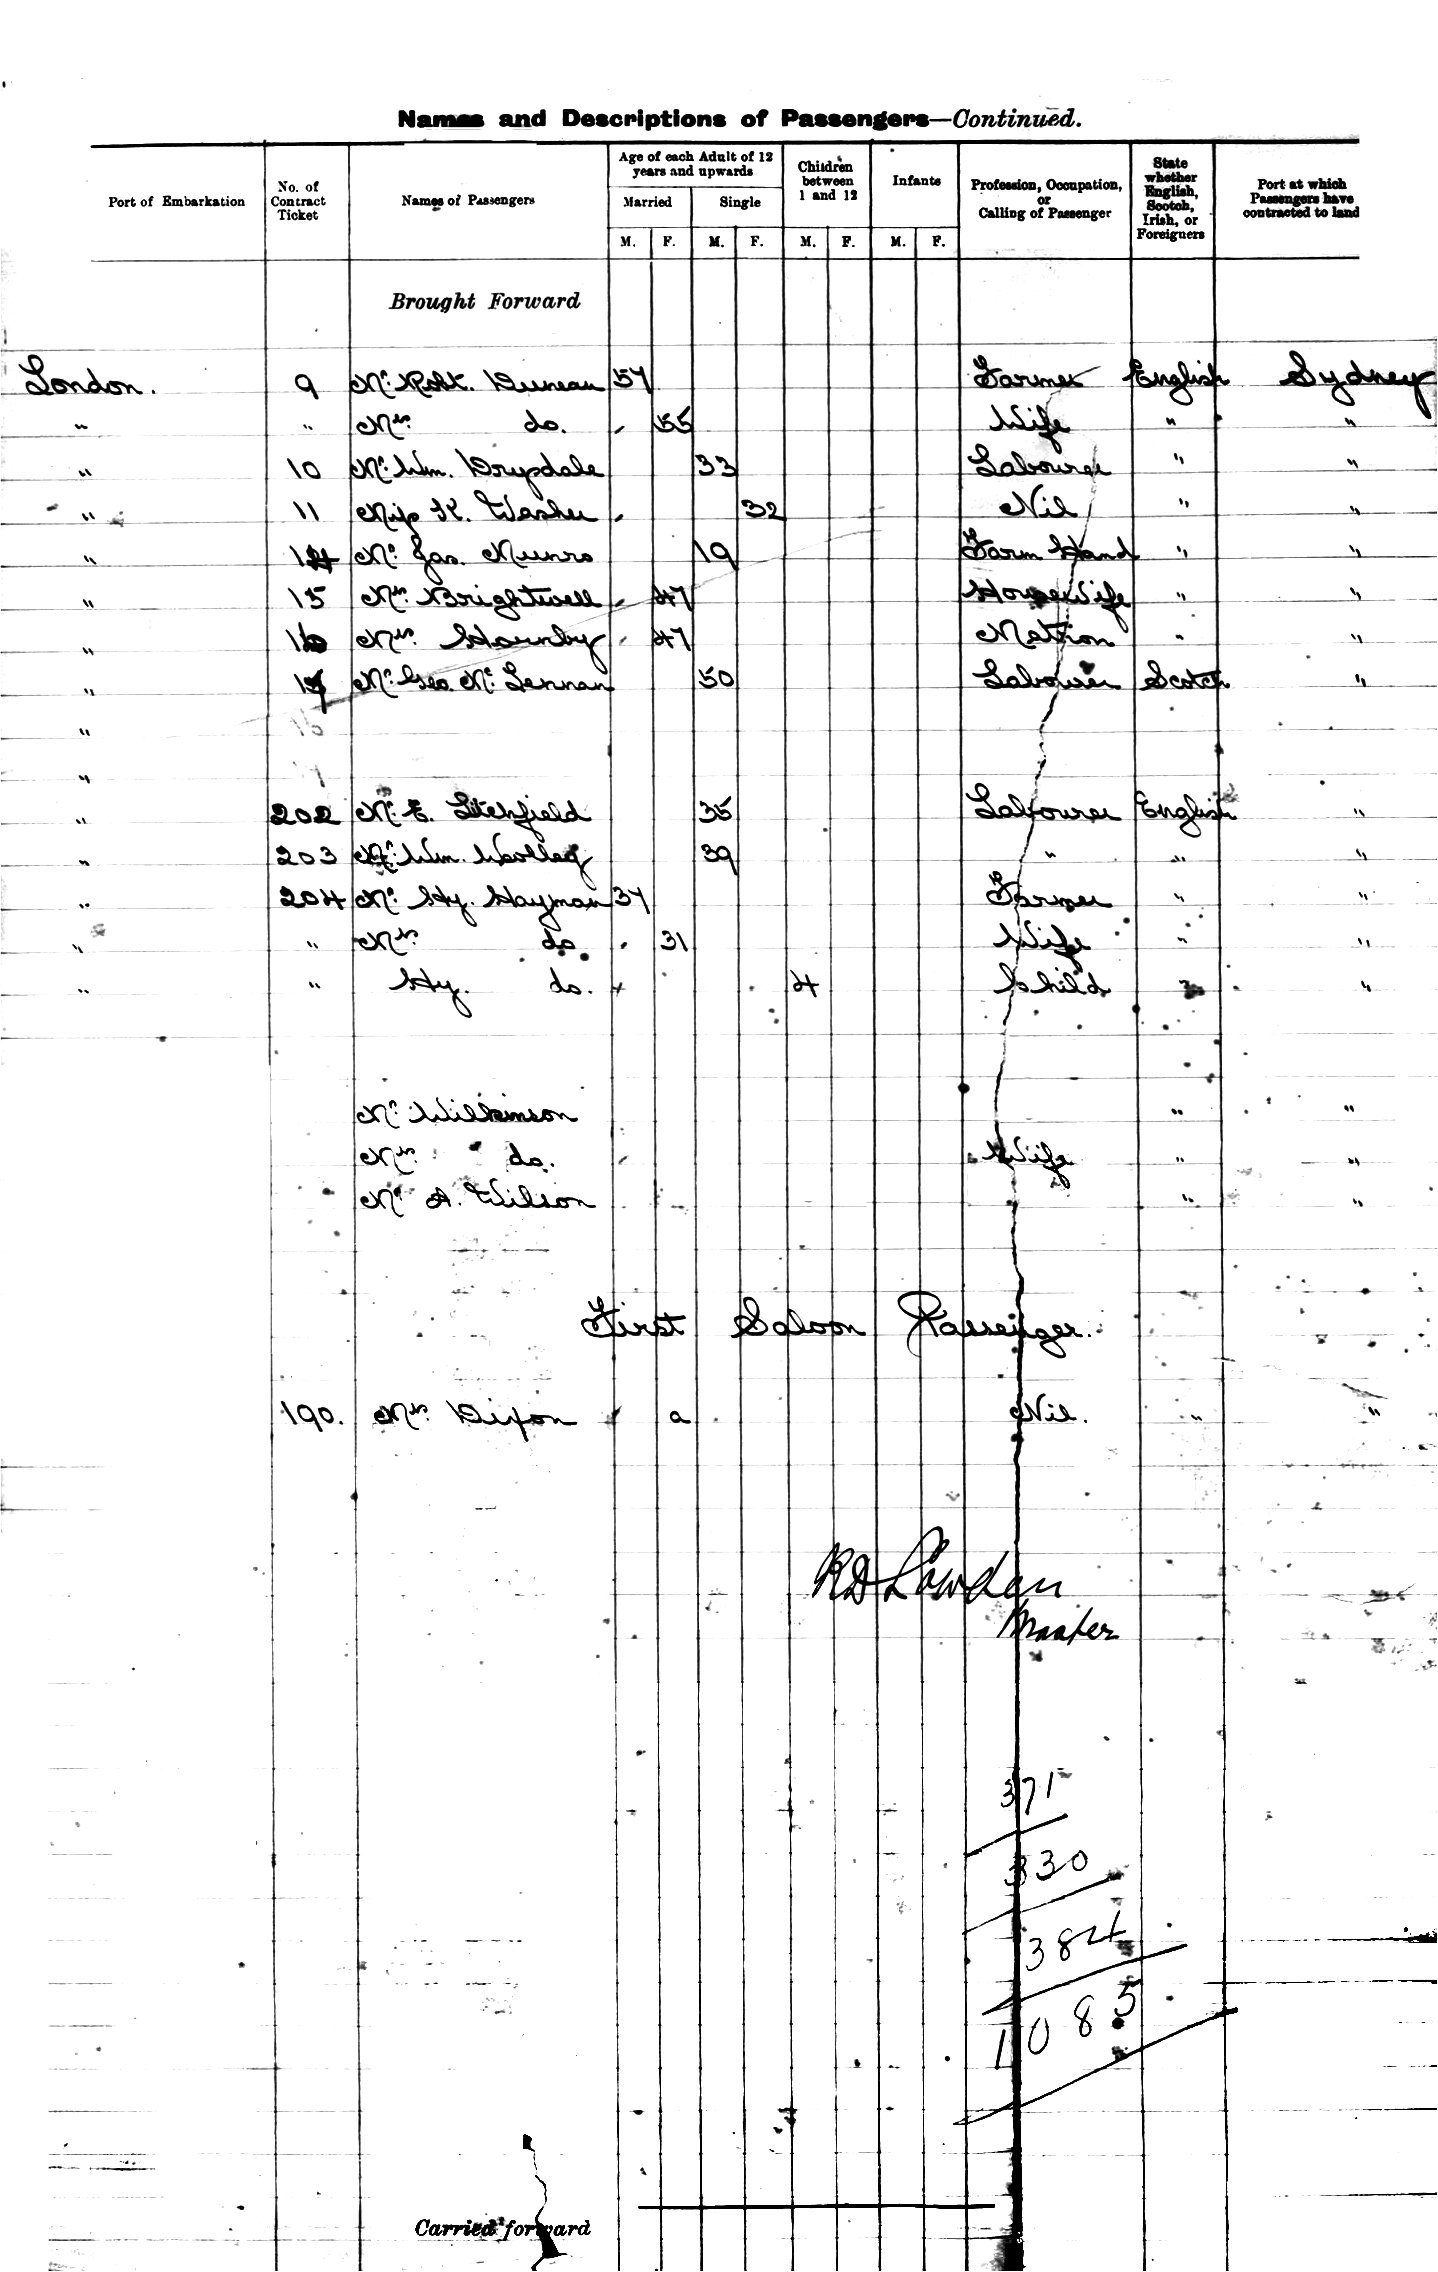 Names and Descriptions of Passengers—Continued.
Port of Embarkation No. of Contract Ticket Names of Passengers Age of each Adult of 12 years and upwards Married M. F. Single M. F. Children between 1 and 12 M. F. Infants M. F. Profession, Occupation, or Calling of Passenger State whether English, Scotch, Irish, or Foreigners Port at which Passengers have contracted to land
Brought Forward
London. 9 Mr. Robt. Duncan 57 Farmer English Sydney
" " Mrs. do. 55 Wife " "
" 10 Mr. Wm. Drysdale 33 Labourer " "
" 11 Miss K. Washer 32 Nil " "
" 14 Mr. Jas. Munro 19 Farm Hand " "
" 15 Mrs. Brightwell 47 HouseWife " "
" 16 Mrs. Hornby 47 Matron " "
" Mr. Geo. McLennan 50 Labourer Scotch "
" 16
"
" 202 Mr. E. Litchfield 35 Labourer English "
" 203 Mr. Wm. 39 " " "
" 204 Mr. Hy. Hayman 37 Farmer " "
" " Mrs. do 31 Wife " "
" " Hy. do. 4 Child " "
Mr. Wilkinson " "
Mrs. do. Wife " "
Mr. A. Wilson " "
First Saloon Passenger.
190. Mrs. Dixon a Nil. " "
RD Lowden
Master
371
330
384
1085
Carried forward